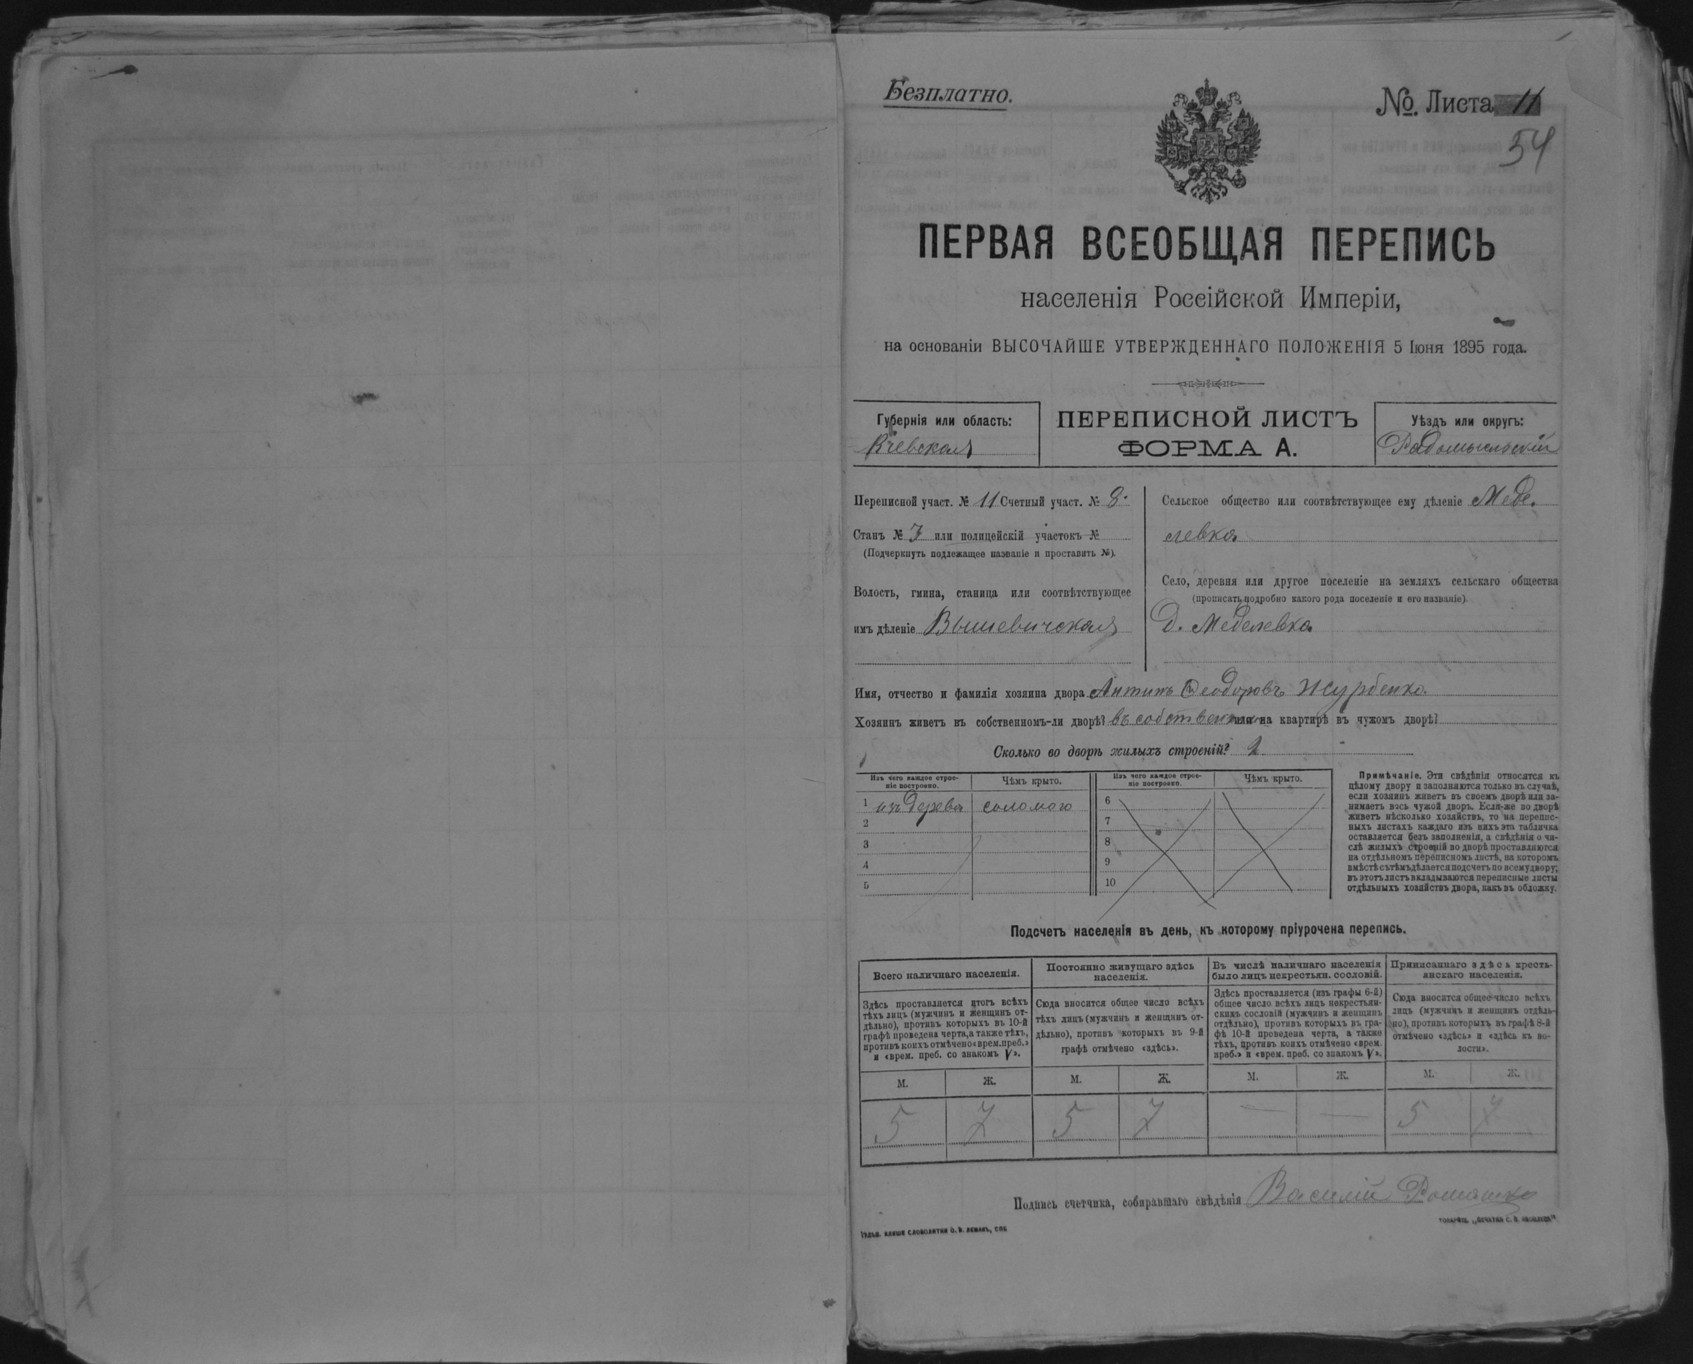 Безплатно.
№ Листа 11
54
ПЕРВАЯ ВСЕОБЩАЯ ПЕРЕПИСЬ
населенія Россійской Имперіи,
на основаніи ВЫСОЧАЙШЕ УТВЕРЖДЕННАГО ПОЛОЖЕНІЯ 5 Іюня 1895 года.
Губернія или область:
Кіевская
ПЕРЕПИСНОЙ ЛИСТЪ
ФОРМА А.
Уѣздъ или округъ:
Радомысльскій
Переписной участ. № 11 Счетный участ. № 8.
Станъ № 3 или полицейскій участокъ №
(Подчеркнуть подлежащее названіе и проставить №).
Волость, гмина, станица или соотвѣтствующее
имъ дѣленіе Вышевичская
Сельское общество или соотвѣтствующее ему дѣленіе Меде-
левка
Село, деревня или другое поселеніе на земляхъ сельскаго общества
(прописать подробно какого рода поселеніе и его названіе)
д. Меделевка
Имя, отчество и фамилія хозяина двора Антипъ Ѳеодоровъ Журбенко
Хозяинъ живетъ въ собственномъ-ли дворѣ? въ собственномъ или на квартирѣ въ чужомъ дворѣ?
Сколько во дворѣ жилыхъ строеній? 1
Изъ чего каждое строе-
ніе построено.
Чѣмъ крыто.
1 изъ дерева соломою
2
3
4
5
Изъ чего каждое строе-
ніе построено.
Чѣмъ крыто.
6
7
8
9
10
Примѣчаніе. Эти свѣдѣнія относятся къ
цѣлому двору и заполняются только въ случаѣ,
если хозяинъ живетъ въ своемъ дворѣ или за-
нимаетъ весь чужой дворъ. Если-же во дворѣ
живетъ нѣсколько хозяйствъ, то на перепис-
ныхъ листахъ каждаго изъ нихъ эта табличка
оставляется безъ заполненія, а свѣдѣнія о чи-
слѣ жилыхъ строеній во дворѣ проставляются
на отдѣльномъ переписномъ листѣ, на которомъ
вмѣстѣ съ тѣмъ дѣлается подсчетъ по всему двору;
въ этотъ листъ вкладываются переписные листы
отдѣльныхъ хозяйствъ двора, какъ въ обложку.
Подсчетъ населенія въ день, къ которому пріурочена перепись.
Всего наличнаго населенія.
Здѣсь проставляется итогъ всѣхъ
тѣхъ лицъ (мужчинъ и женщинъ от-
дѣльно), противъ которыхъ въ 10-й
графѣ проведена черта, а также тѣхъ,
противъ коихъ отмѣчено «врем. преб.»
и «врем. преб. со знакомъ V».
М. Ж.
5 7
Постоянно живущаго здѣсь
населенія.
Сюда вносится общее число всѣхъ
тѣхъ лицъ (мужчинъ и женщинъ от-
дѣльно), противъ которыхъ въ 9-й
графѣ отмѣчено «здѣсь».
М. Ж.
5 7
Въ числѣ наличнаго населенія
было лицъ некрестьян. сословій.
Здѣсь проставляется (изъ графы 6-й)
общее число всѣхъ лицъ некрестьян-
скихъ сословій (мужчинъ и женщинъ
отдѣльно), противъ которыхъ въ гра-
фѣ 10-й проведена черта, а также
тѣхъ, противъ коихъ отмѣчено «врем.
преб.» и «врем. преб. со знакомъ V».
М. Ж.
— —
Приписаннаго здѣсь кресть-
янскаго населенія.
Сюда вносится общее число всѣхъ
лицъ (мужчинъ и женщинъ отдѣль-
но), противъ которыхъ въ графѣ 8-й
отмѣчено «здѣсь» и «здѣсь къ во-
лости».
М. Ж.
5 7
Подпись счетчика, собиравшаго свѣдѣнія Василій Ромашко